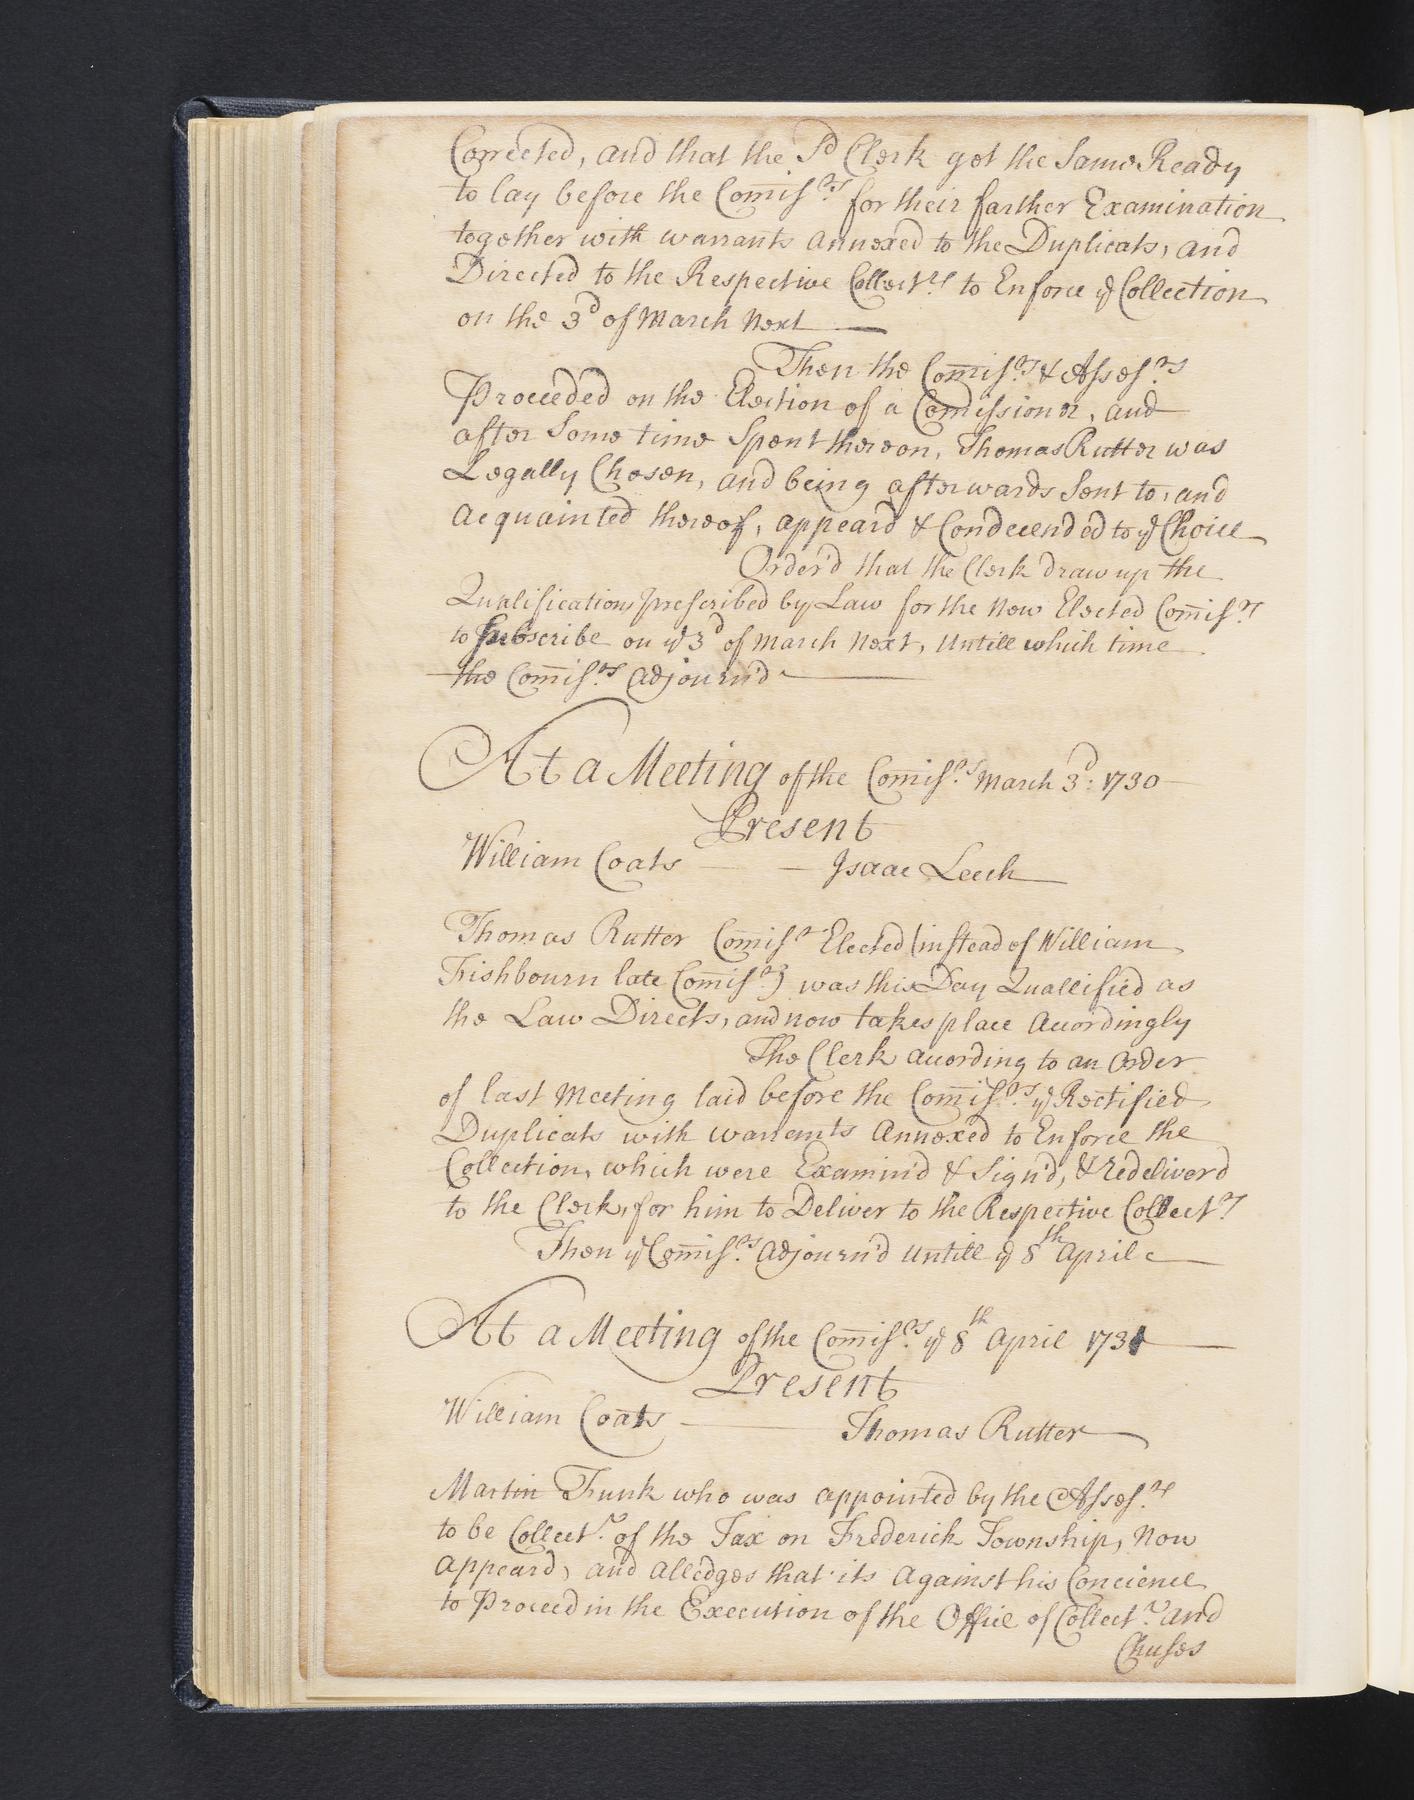 Corrected, and that the Sd Clerk get the Same Ready
to lay before the Comissrs for their farther Examination
together with warrants annexed to the Duplicats, and
Directed to the Respective Collectrs to Enforce ye Collection
on the 3d of March Next
Then the Comissrs & Assesrs
Proceeded on the Election of a Comissioner, and
after Some time Spent thereon, Thomas Rutter was
Legally Chosen, and being afterwards Sent to, and
acquainted thereof, appeard & Condecended to ye Choice
Order'd that the Clerk draw up the
Qualifications prescribed by Law for the New Elected Comisr
to Subscribe on ye 3d of March Next, Untill which time
the Comisrs adjourn'd
At a Meeting of the Comisrs March 3d: 1730
Present
William Coats Isaac Leech
Thomas Rutter Comisr Elected (instead of William
Fishbourn late Comisr) was this Day Quallified as
the Law Directs, and now takes place Acordingly
The Clerk acording to an Order
of last Meeting laid before the Comisrs ye Rectified
Duplicats with warrants Annexed to Enforce the
Collection, which were Examin'd & Sign'd, & redeliverd
to the Clerk, for him to Deliver to the Respective Collectrs
Then ye Comisrs adjourn'd untill ye 8th April
At a Meeting of the Comisrs ye 8th April 1731
Present
William Coats Thomas Rutter
Martin Funk who was appointed by the Assesrs
to be Collectr of the Tax on Frederick Township, Now
appeard, and alledges that its against his Concience
to Proceed in the Execution of the Office of Collectr and
Chuses